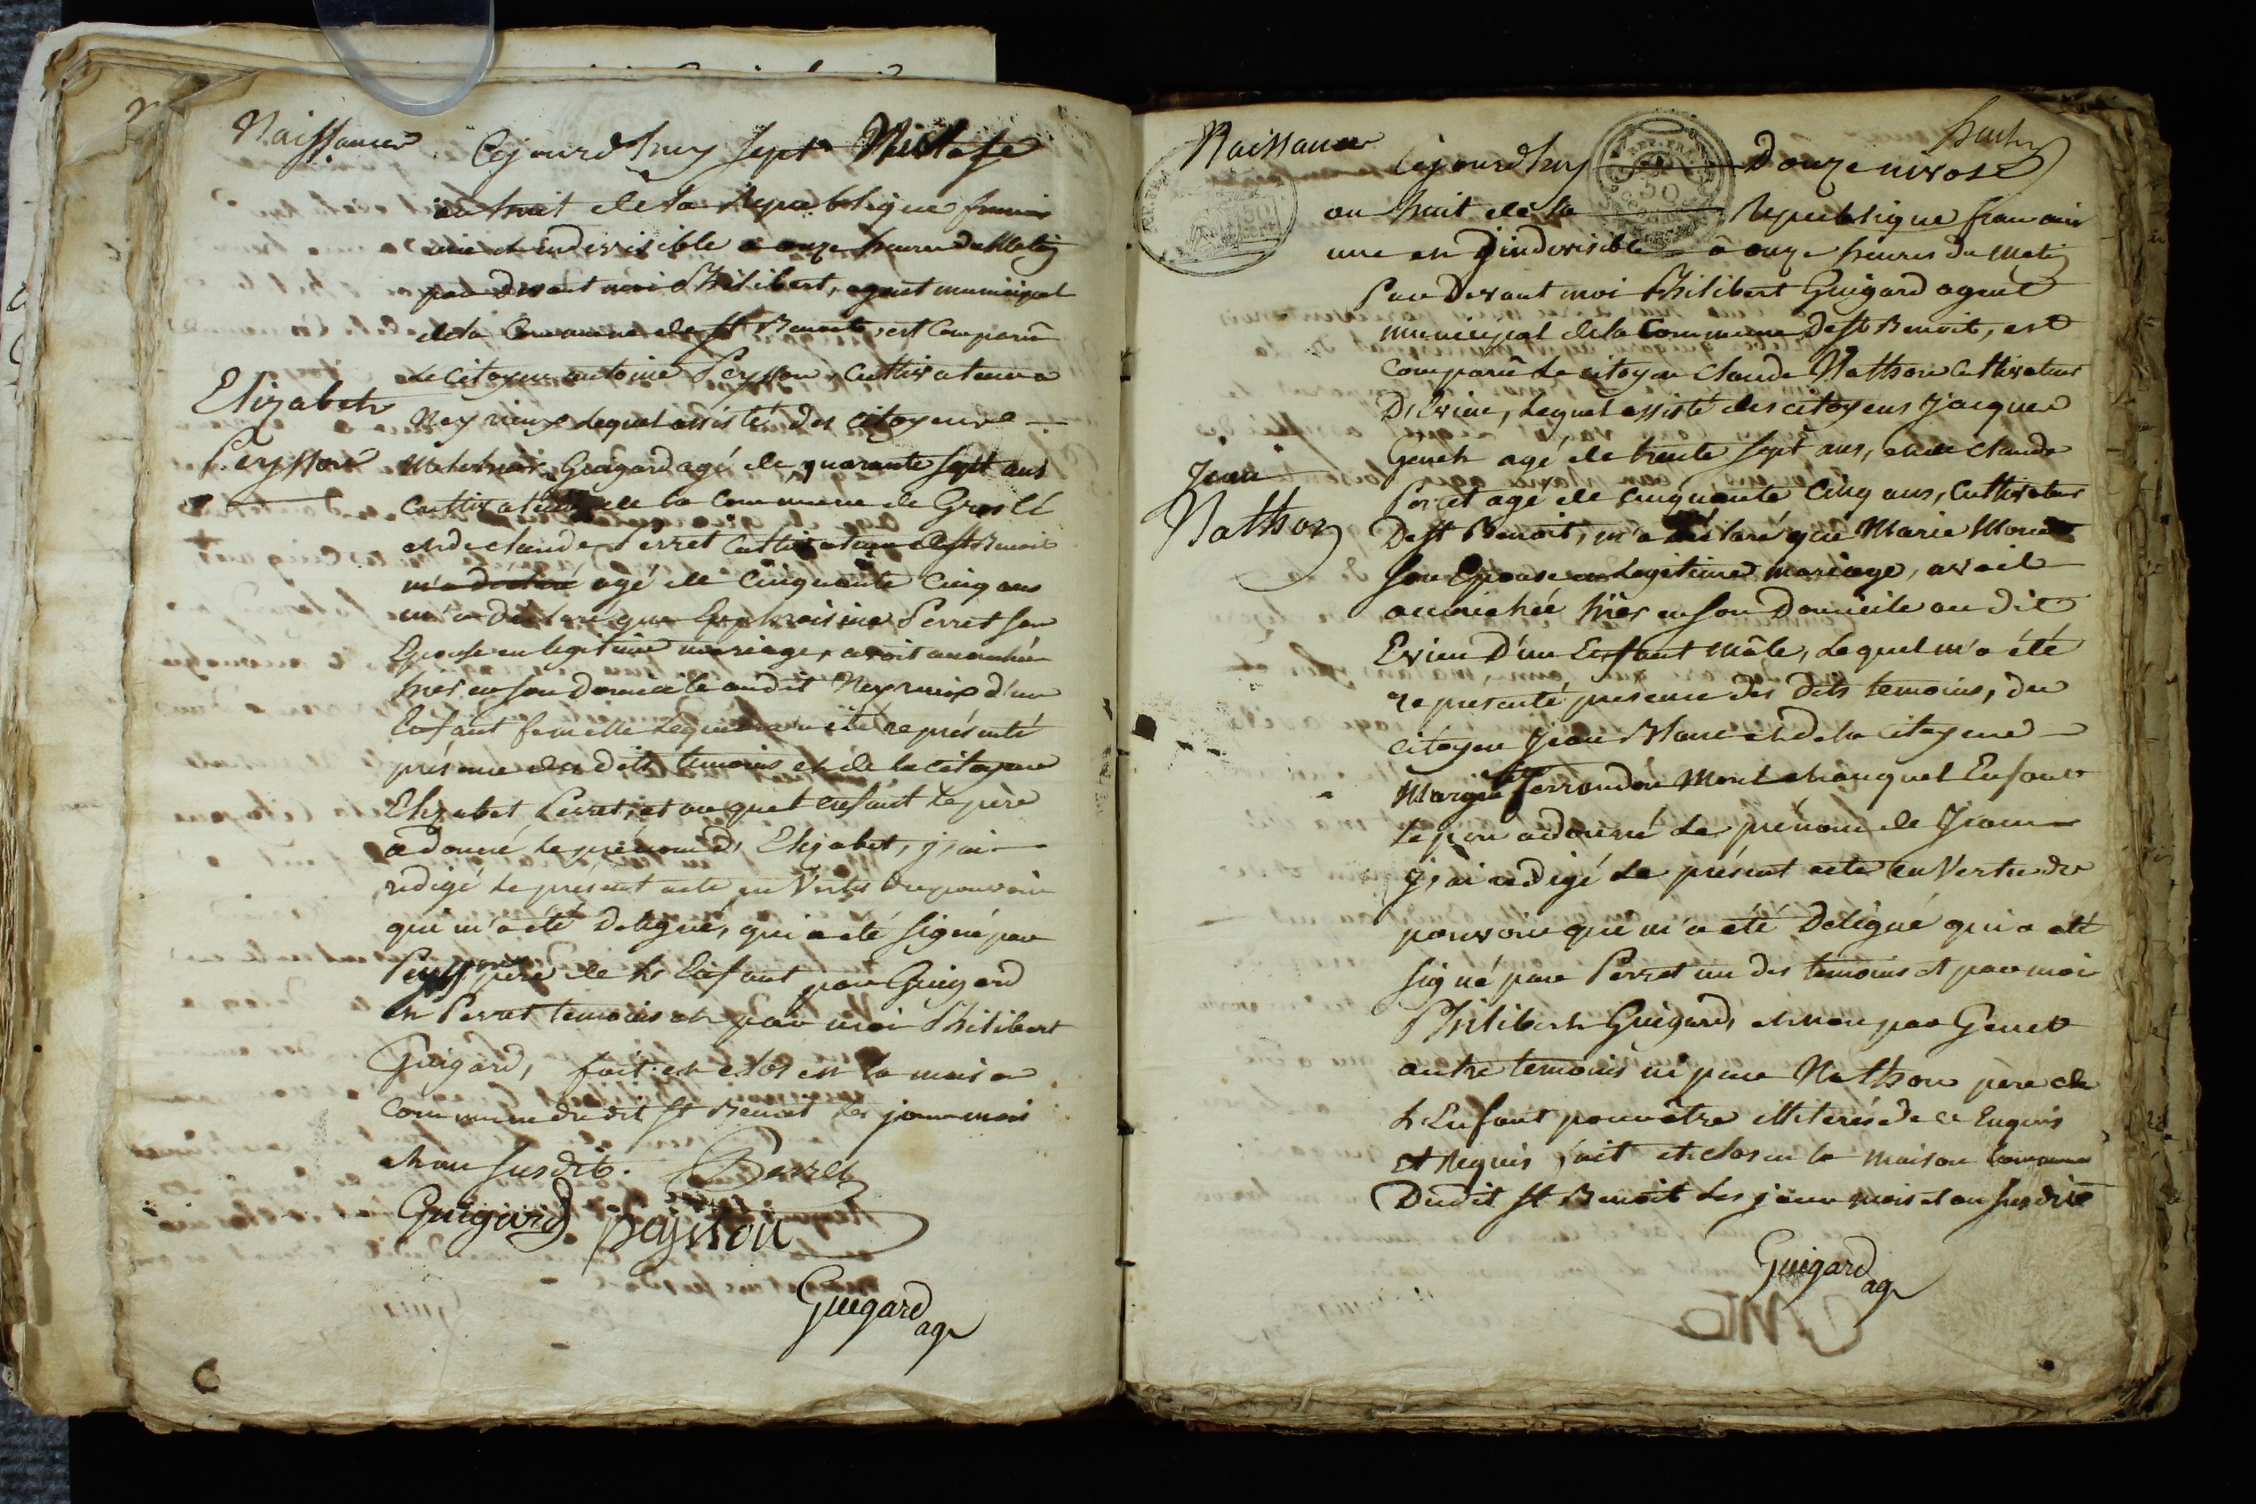 Naissance
Cejourd'huy sept Nivose
an huit de la Republique francais
une et indivisible a onze heures du Matin
par devant moi Philibert, agent municipal
de la Commune de St Benoit, est Comparû
Le citoyen antoine Peysson, cultivateur a
Elizabeth
Neyrieux Lequel assisté des citoyens
Peysson
Guigard agé de quarante sept ans
cultivateur de la commune de Groslé
et de claude Perret cultivateur de St Benoit
m'a declaré agé de cinquante cinq ans
m'a déclaré que Euphroisine Perret son
Epouse en legitime mariage, avoit accouchée
hier en son Domicile audit Neyrieux d'un
Enfant femelle Lequel m'a été représenté
présence des dits temoins et de la citoyene
Elizabet Perret, et au quel enfant le père
a donné le prénom d'Elizabet, j'ai
redigé le présent acte en Vertu du pouvoir
qui m'a été Delegué, qui a été signé par
Peysson père de L'Enfant par Guigard
et Perret temoins et par moi Philibert
Guigard, fait et clos en la maison
commune du dit St Benoit les jour mois
et an susdit. Perret
Guigard Peysson
Guigard
ag
huit
Naissance
Cejourdhuy Douze nivose
REP. FRA.
50
an huit de la Republique francais
une et indivisible à onze heures du matin
Par Devant moi Philibert Guigard agent
municipal de la Commune de St Benoit, est
Comparû Le citoyen Claude Nathon cultivateur
D'Evieu, Lequel assisté des citoyens Jacques
Genet agé de trente sept ans, et de claude
Jean
Perret agé de cinquante cinq ans, cultivateur
Nathon
De St Benoit, m'a déclaré que Marie
son Epouse en Legitime mariage, avoit
accouchée hier en son Domicile au dit
Evieu D'un Enfant mâle, Lequel m'a été
representé presence des dits temoins, du
citoyen Jean Blanc et de la citoyene
Marie auquel Enfant
le père a donné le prénom de Jean
j'ai redigé le présent acte en Vertu du
pouvoir qui m'a été Délégué qui a été
signé par Perret un des temoins et par moi
Philibert Guigard, et non par Genet
autre temoins ni par Nathon père de
L'Enfant pour être illiterés de ce Enquis
et Requis, fait et clos en la maison commune
Dudit St Benoit Les jour mois et an susdit
Guigard
ag